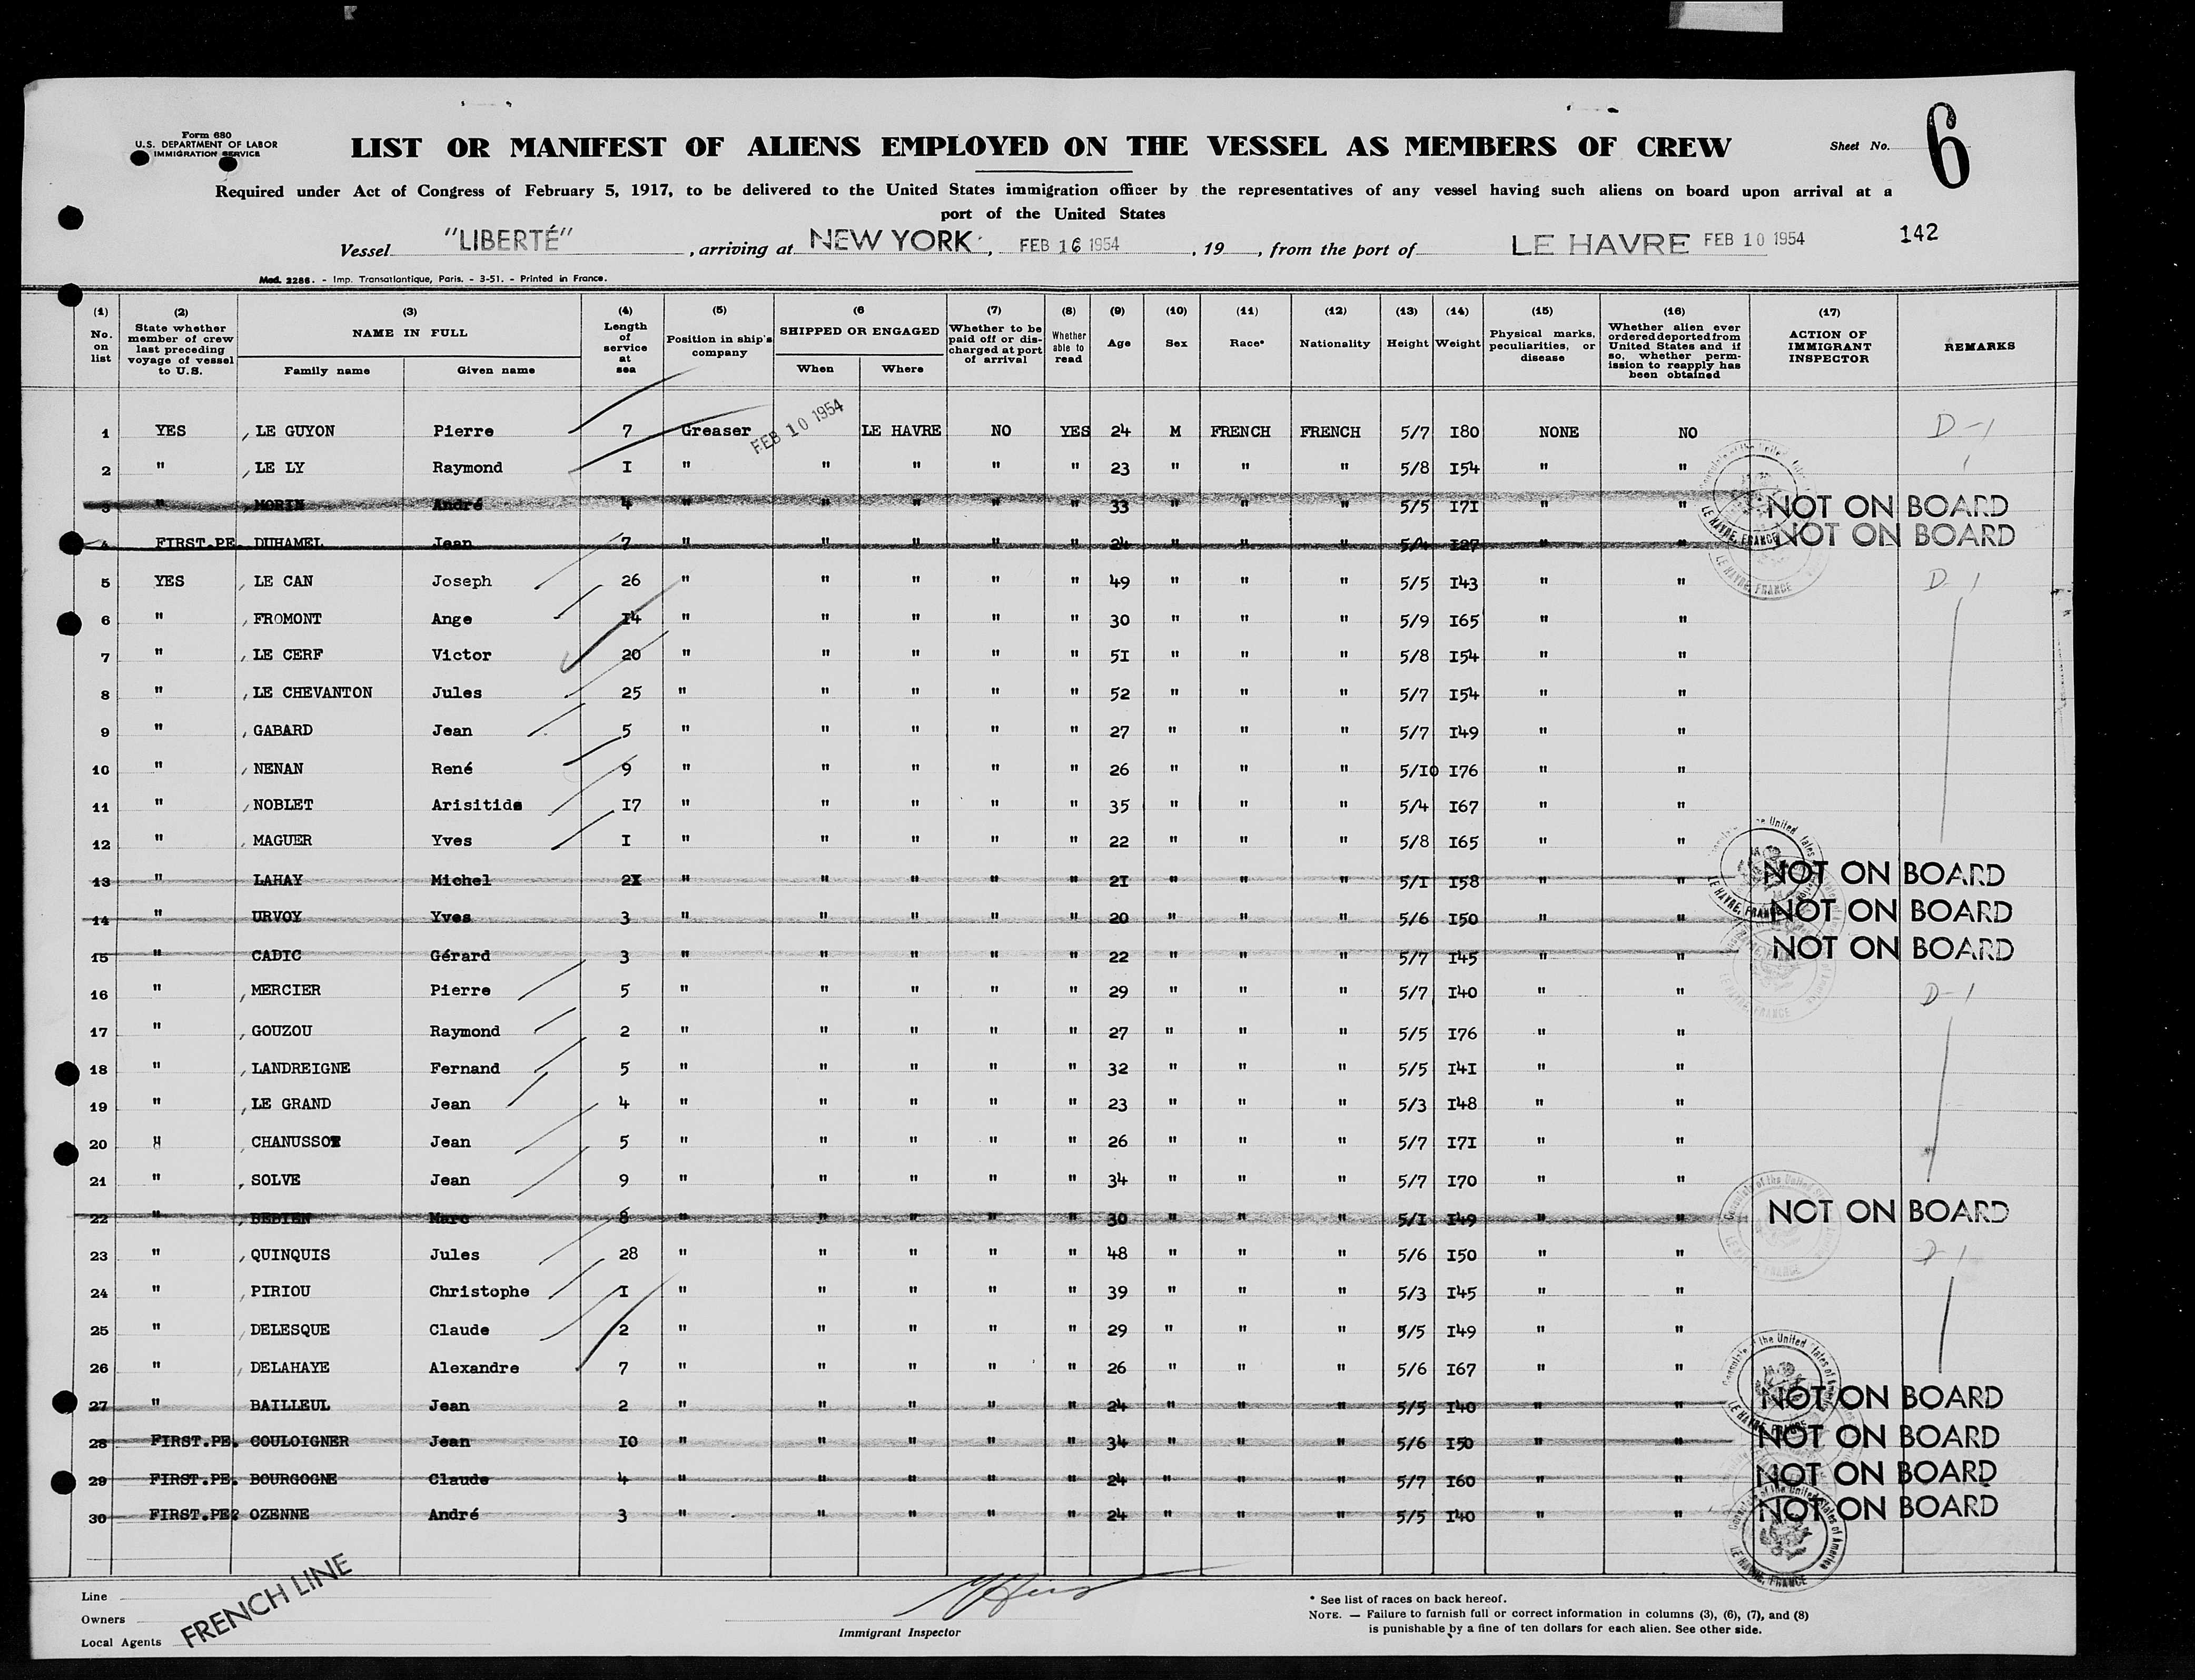 Form 680
U.S. DEPARTMENT OF LABOR
IMMIGRATION SERVICE
LIST OR MANIFEST OF ALIENS EMPLOYED ON THE VESSEL AS MEMBERS OF CREW
Sheet No. 6
Required under Act of Congress of February 5, 1917, to be delivered to the United States immigration officer by the representatives of any vessel having such aliens on board upon arrival at a
port of the United States
Vessel "LIBERTÉ", arriving at NEW YORK, FEB 16 1954, 19, from the port of LE HAVRE FEB 10 1954 142
Mod. 2286. - Imp. Transatlantique, Paris. - 3-51. - Printed in France.
(1) No. on list
(2) State whether member of crew last preceding voyage of vessel to U.S.
(3) NAME IN FULL
Family name Given name
(4) Length of service at sea
(5) Position in ship's company
(6 SHIPPED OR ENGAGED
When Where
(7) Whether to be paid off or discharged at port of arrival
(8) Whether able to read
(9) Age
(10) Sex
(11) Race*
(12) Nationality
(13) Height
(14) Weight
(15) Physical marks, peculiarities, or disease
(16) Whether alien ever ordered deported from United States and if so, whether permission to reapply has been obtained
(17) ACTION OF IMMIGRANT INSPECTOR
REMARKS
1 YES LE GUYON Pierre 7 Greaser FEB 10 1954 LE HAVRE NO YES 24 M FRENCH FRENCH 5/7 I80 NONE NO D-1
2 " LE LY Raymond I " " " " " 23 " " " 5/8 I54 " "
3 " MORIN André 4 " " " " " 33 " " " 5/5 I7I " " NOT ON BOARD
4 FIRST.PE. DUHAMEL Jean 7 " " " " " 24 " " " 5/4 I27 " " NOT ON BOARD
5 YES LE CAN Joseph 26 " " " " " 49 " " " 5/5 I43 " " D-1
6 " FROMONT Ange I4 " " " " " 30 " " " 5/9 I65 " "
7 " LE CERF Victor 20 " " " " " 5I " " " 5/8 I54 " "
8 " LE CHEVANTON Jules 25 " " " " " 52 " " " 5/7 I54 " "
9 " GABARD Jean 5 " " " " " 27 " " " 5/7 I49 " "
10 " NENAN René 9 " " " " " 26 " " " 5/I0 I76 " "
11 " NOBLET Arisitide I7 " " " " " 35 " " " 5/4 I67 " "
12 " MAGUER Yves I " " " " " 22 " " " 5/8 I65 " "
13 " LAHAY Michel 2I " " " " " 2I " " " 5/I I58 " " NOT ON BOARD
14 " URVOY Yves 3 " " " " " 20 " " " 5/6 I50 " " NOT ON BOARD
15 " CADIC Gérard 3 " " " " " 22 " " " 5/7 I45 " " NOT ON BOARD
16 " MERCIER Pierre 5 " " " " " 29 " " " 5/7 I40 " " D-1
17 " GOUZOU Raymond 2 " " " " " 27 " " " 5/5 I76 " "
18 " LANDREIGNE Fernand 5 " " " " " 32 " " " 5/5 I4I " "
19 " LE GRAND Jean 4 " " " " " 23 " " " 5/3 I48 " "
20 " CHANUSSOT Jean 5 " " " " " 26 " " " 5/7 I7I " "
21 " SOLVE Jean 9 " " " " " 34 " " " 5/7 I70 " "
22 " BEDIEN Marc 8 " " " " " 30 " " " 5/I I49 " " NOT ON BOARD
23 " QUINQUIS Jules 28 " " " " " 48 " " " 5/6 I50 " " D-1
24 " PIRIOU Christophe I " " " " " 39 " " " 5/3 I45 " "
25 " DELESQUE Claude 2 " " " " " 29 " " " 5/5 I49 " "
26 " DELAHAYE Alexandre 7 " " " " " 26 " " " 5/6 I67 " "
27 " BAILLEUL Jean 2 " " " " " 24 " " " 5/5 I40 " " NOT ON BOARD
28 FIRST.PE. COULOIGNER Jean I0 " " " " " 34 " " " 5/6 I50 " " NOT ON BOARD
29 FIRST.PE. BOURGOGNE Claude 4 " " " " " 24 " " " 5/7 I60 " " NOT ON BOARD
30 FIRST.PE? OZENNE André 3 " " " " " 24 " " " 5/5 I40 " " NOT ON BOARD
Consulate of the United States of America
LE HAVRE, FRANCE
Line
Owners
Local Agents
FRENCH LINE
Immigrant Inspector
* See list of races on back hereof.
NOTE. — Failure to furnish full or correct information in columns (3), (6), (7), and (8)
is punishable by a fine of ten dollars for each alien. See other side.